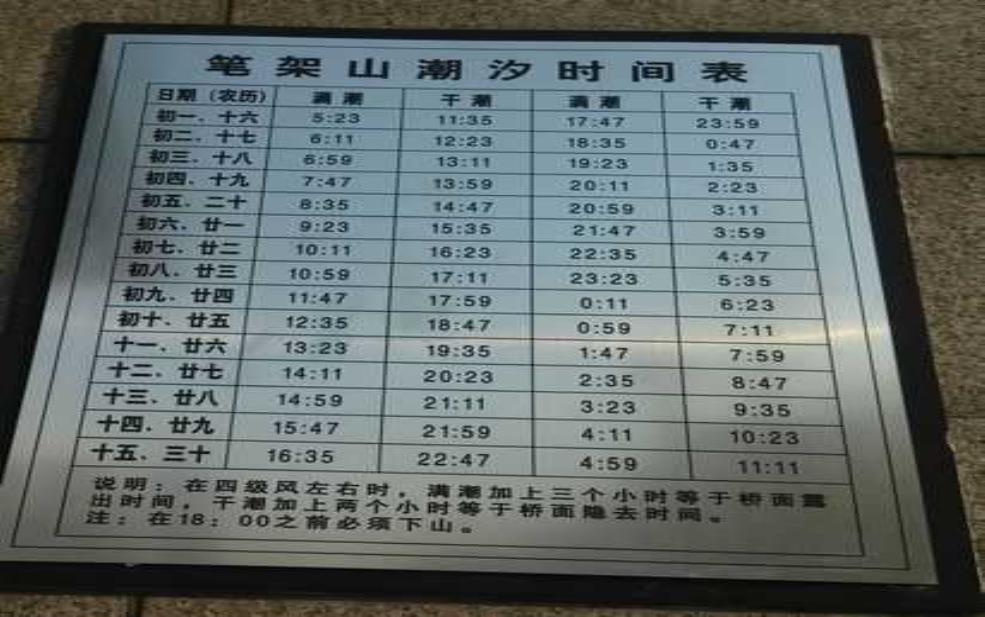 笔架山潮汐时间表
日期（农历） 满潮 干潮 满潮 干潮
初一．十六 5:23 11:35 17:47 23:59
初二．十七 6:11 12:23 18:35 0:47
初三．十八 6:59 13:11 19:23 1:35
初四．十九 7:47 13:59 20:11 2:23
初五．二十 8:35 14:47 20:59 3:11
初六．廿一 9:23 15:35 21:47 3:59
初七．廿二 10:11 16:23 22:35 4:47
初八．廿三 10:59 17:11 23:23 5:35
初九．廿四 11:47 17:59 0:11 6:23
初十．廿五 12:35 18:47 0:59 7:11
十一．廿六 13:23 19:35 1:47 7:59
十二．廿七 14:11 20:23 2:35 8:47
十三．廿八 14:59 21:11 3:23 9:35
十四．廿九 15:47 21:59 4:11 10:23
十五．三十 16:35 22:47 4:59 11:11
说明：在四级风左右时，满潮加上三个小时等于桥面露
出时间，干潮加上两个小时等于桥面隐去时间。
注：在18：00之前必须下山。